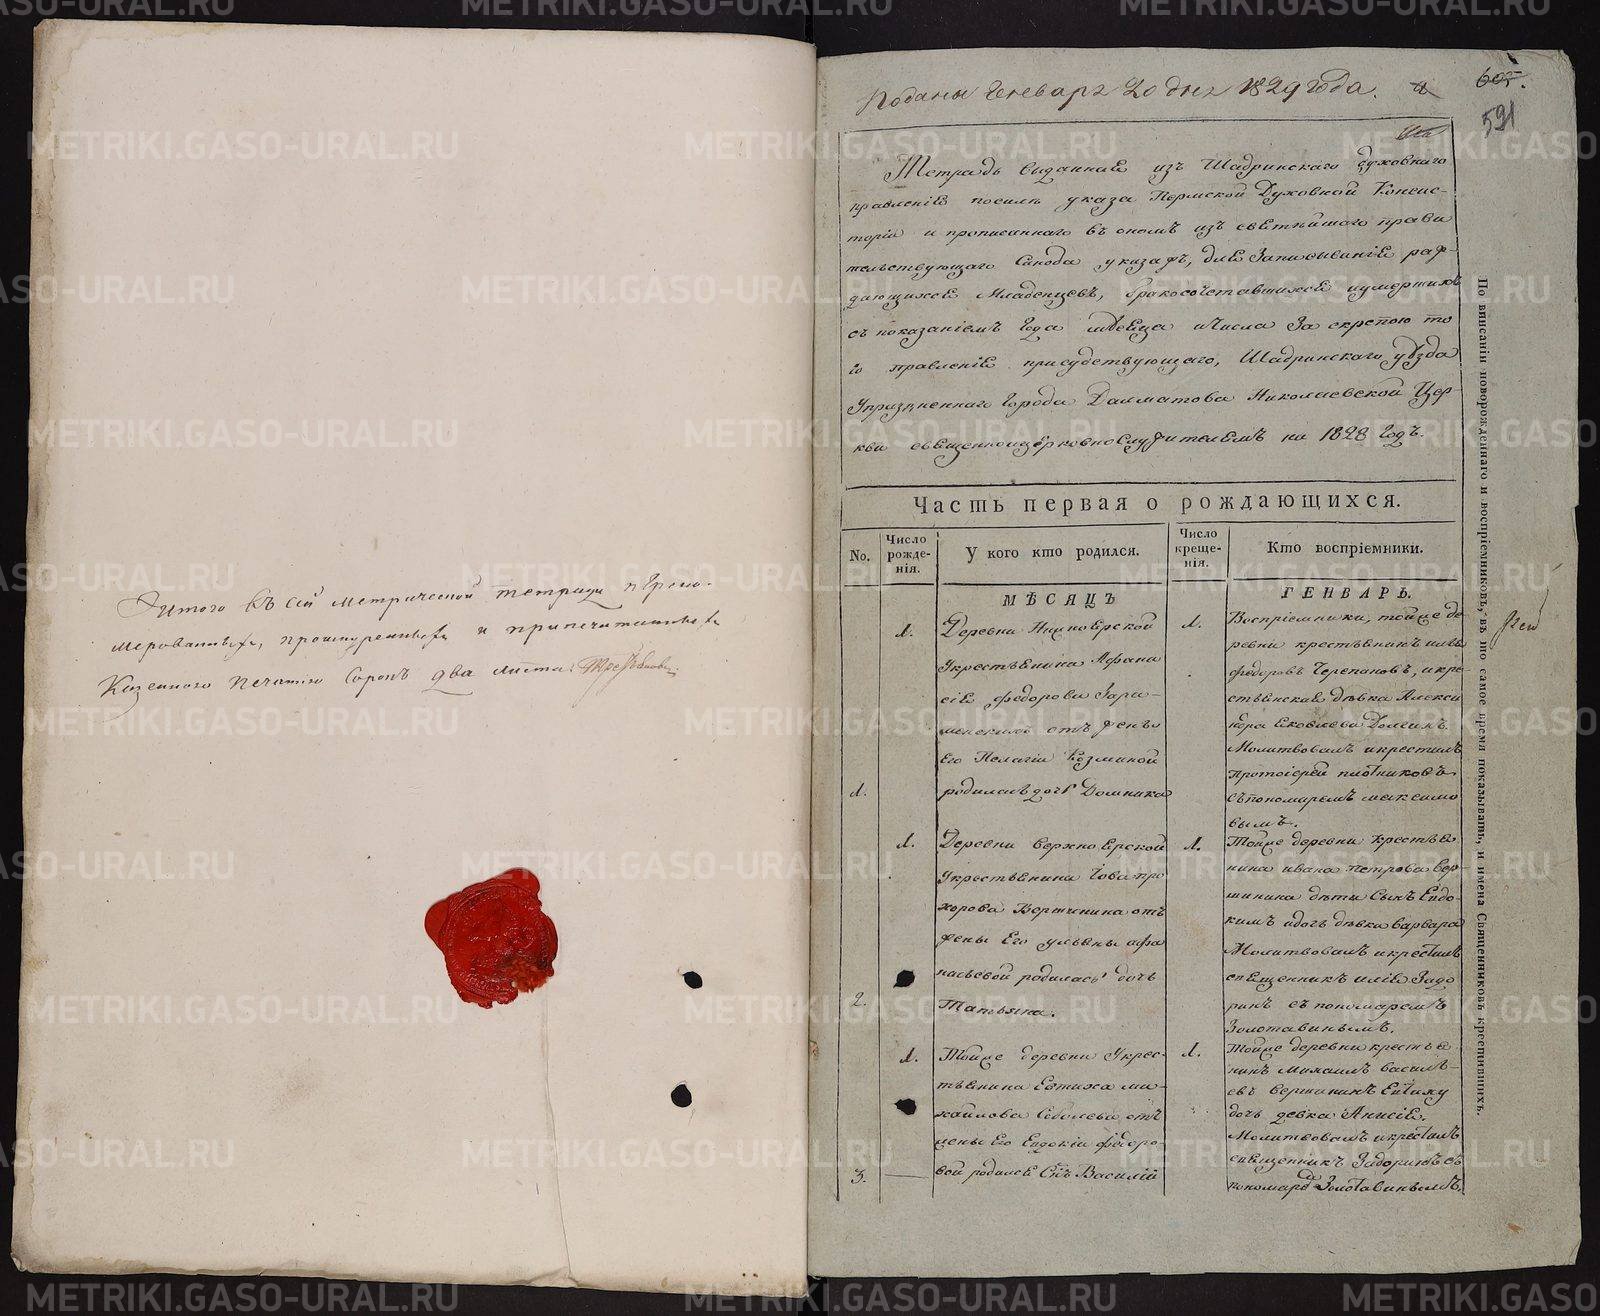 Итого въ сей метрической тетради перено-
мерованныхъ, прошнуренныхъ и припечатанныхъ
Казенною печатью Сорокъ два листа
Поданы Генваря 20 дня 1829 года.
605.
591
Тетрадь выданная изъ Шадринскаго духовнаго
правленія посилѣ указа Пермской Духовной Консис-
торіи и прописаннаго въ ономъ изъ святѣйшаго прави
тельствующаго Синода указахъ, для Записыванія раж-
дающихся Младенцевъ, бракосочетавшихся иумершихъ
съ показаніемъ Года мѣсяца ичисла За скрепою то
го правленія присудствующаго, Шадринскаго уѣзда
Упразненнаго Города Далматова Николаевской Цер-
кви священноицерковнослужителемъ на 1828 Годъ.
Часть первая о рождающихся.
No.
Число рожде-нія.
У кого кто родился.
Число креще-нія.
Кто воспріемники.
МѢСЯЦЪ
ГЕНВАРЬ.
1.
Деревни Нижноярской
Укрестьянина Афана
сія Федорова Зари-
отъ жены
Его Пелагіи Козминой
1.
родилась дочь Домника
1.
Воспріемники, тойже де
ревни крестьянинъ
федоровъ Черепановъ, икре
стьянская дѣвка Алекса
ндра Яковлева
Молитвовалъ икрестилъ
протоіерей плотниковъ
съпономаремъ максимо
вымъ.
1.
Деревни верхноярской
Укрестьянина Іова про
хорова Вершинина отъ
жены Его ульяны афа
насьевой родилась дочь
2.
Татьяна.
1.
Тойже деревни крестья
нина ивана петрова вер-
шинина дѣти Сынъ Евдо-
кимъ идочь дѣвка варвара
Молитвовалъ икрестилъ
священникъ илія Задо
ринъ съ пономаремъ
Золотавинымъ.
1.
Тойже деревни Укрес-
тьянина Евтиха ми-
хаилова Соболева отъ
жены Его Евдокіи федоро-
3.
вой родился Снъ Василій
1.
Тойже деревни крестья
нинъ михаилъ василь-
евъ вершининъ
дочь девка Анисія.
Молитвовалъ икрестилъ
священникъ Задоринъ съ
пономаремъ Золотавинымъ.
По вписаніи новорожденнаго и воспріемниковъ, въ то самое время показывать, и имена Священниковъ крестившихъ.
METRIKI.GASO-URAL.RU